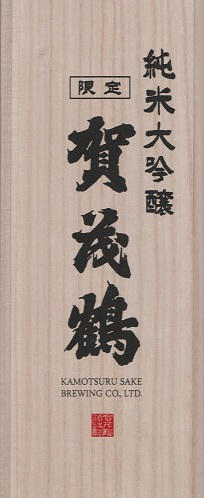 純米大吟醸
限定
賀茂鶴
KAMOTSURU SAKE
BREWING CO., LTD.